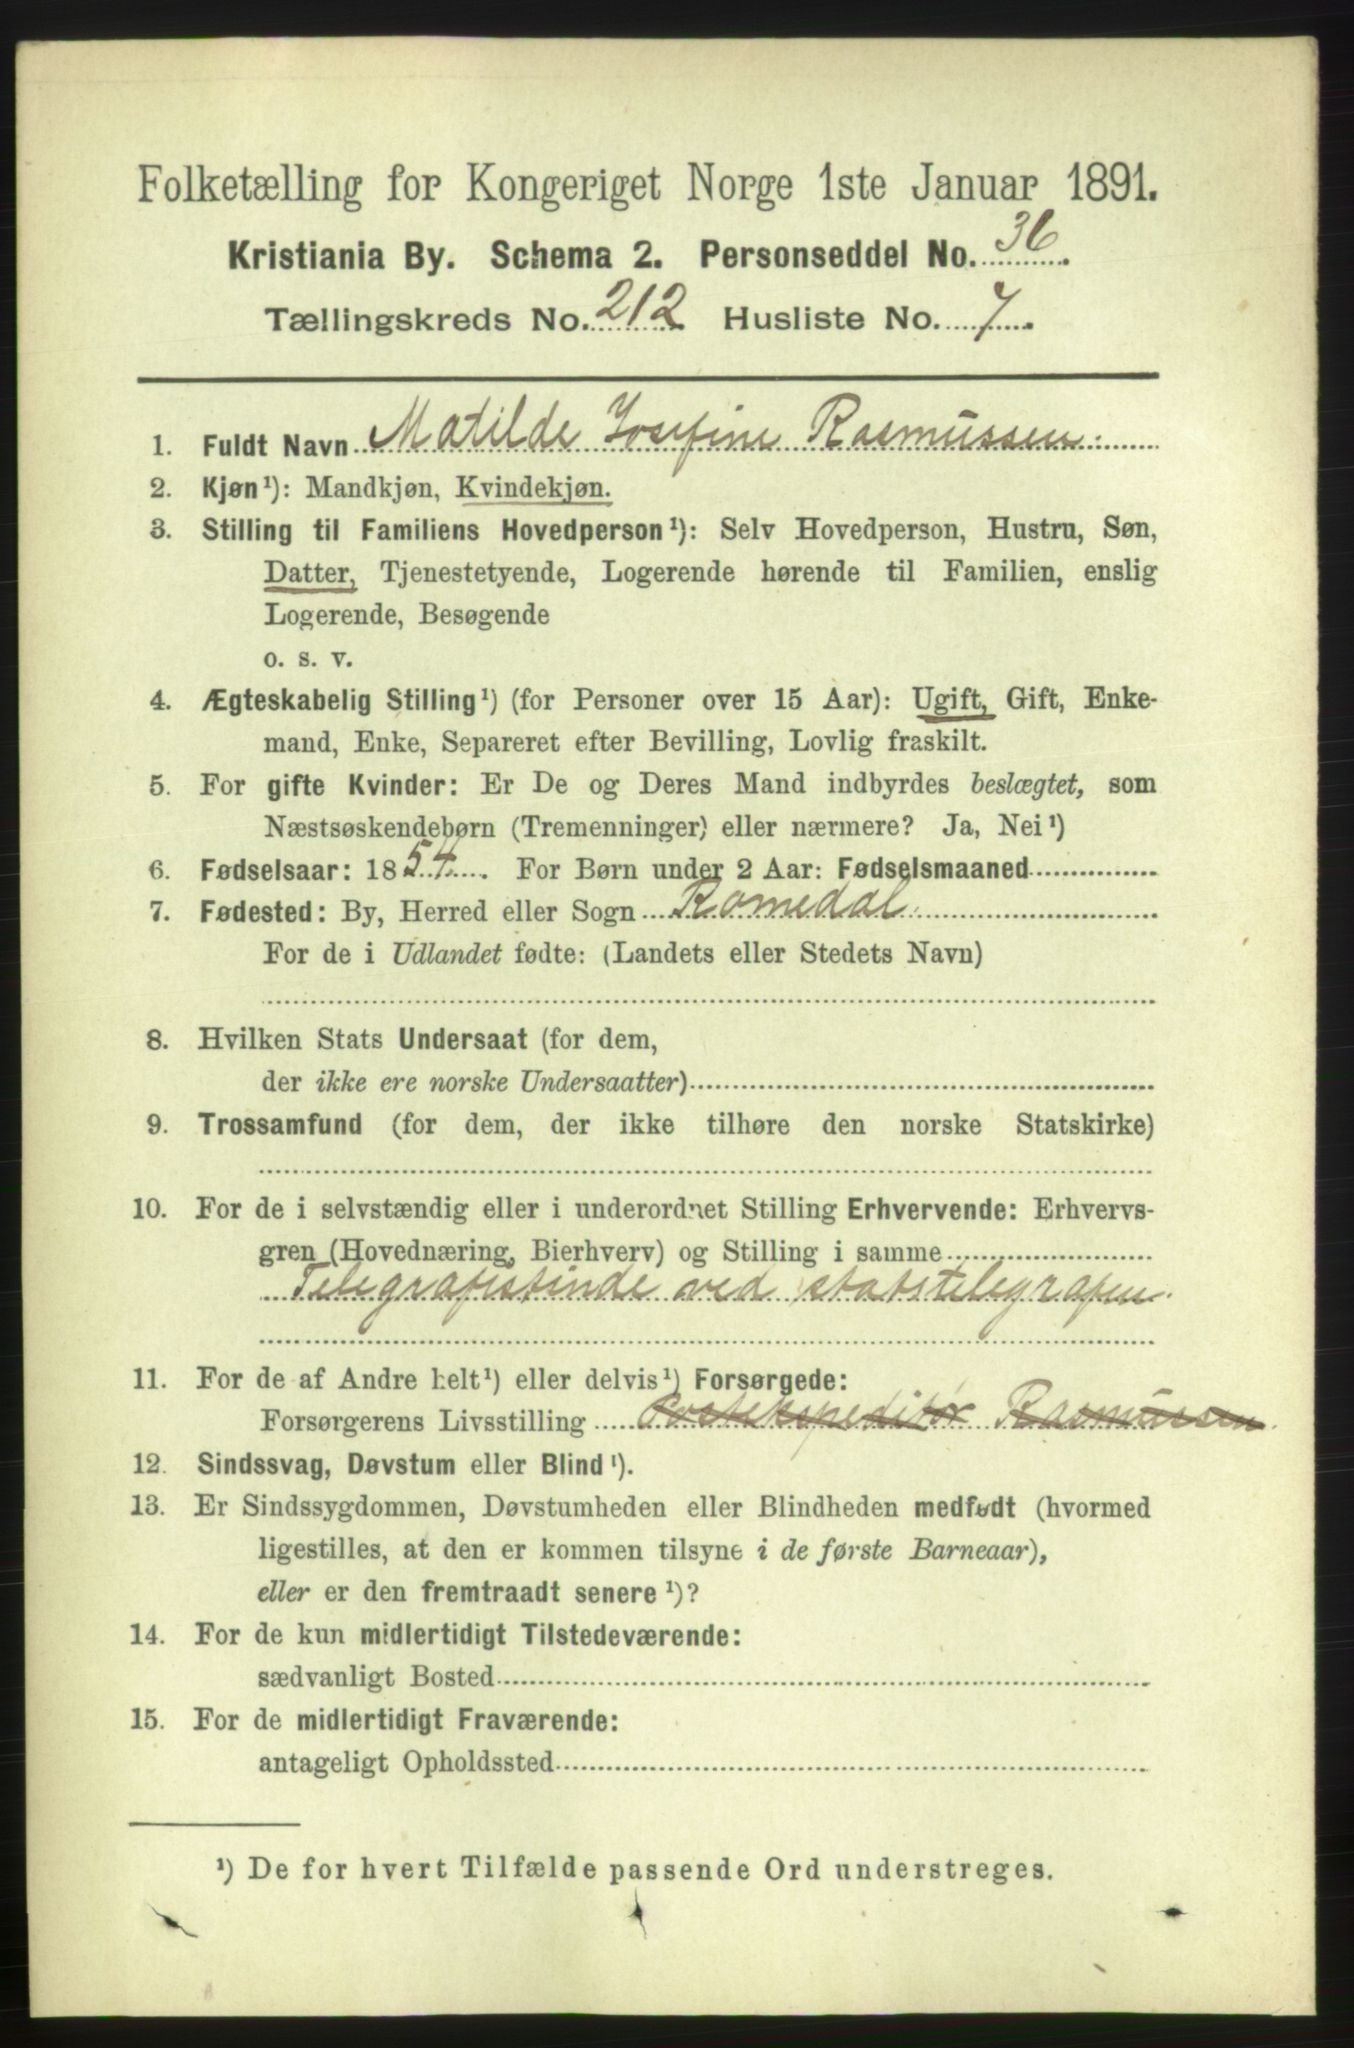 Folketælling for Kongeriget Norge 1ste Januar 1891.
Kristiania By. Schema 2. Personseddel No. 36.
Tællingskreds No. 212 Husliste No. 7.
1. Fuldt Navn Matilde Josefine Rasmussen.
2. Kjøn¹): Mandkjøn, Kvindekjøn.
3. Stilling til Familiens Hovedperson¹): Selv Hovedperson, Hustru, Søn,
Datter, Tjenestetyende, Logerende hørende til Familien, enslig
Logerende, Besøgende
o. s. v.
4. Ægteskabelig Stilling¹) (for Personer over 15 Aar): Ugift, Gift, Enke-
mand, Enke, Separeret efter Bevilling, Lovlig fraskilt.
5. For gifte Kvinder: Er De og Deres Mand indbyrdes beslægtet, som
Næstsøskendebørn (Tremenninger) eller nærmere? Ja, Nei¹)
6. Fødselsaar: 1854. For Børn under 2 Aar: Fødselsmaaned
7. Fødested: By, Herred eller Sogn Romedal.
For de i Udlandet fødte: (Landets eller Stedets Navn)
8. Hvilken Stats Undersaat (for dem,
der ikke ere norske Undersaatter)
9. Trossamfund (for dem, der ikke tilhøre den norske Statskirke)
10. For de i selvstændig eller i underordnet Stilling Erhvervende: Erhvervs-
gren (Hovednæring, Bierhverv) og Stilling i samme
Telegrafistinde ved statstelegrafen.
11. For de af Andre helt¹) eller delvis¹) Forsørgede:
Forsørgerens Livsstilling Postekspeditør Rasmussen.
12. Sindssvag, Døvstum eller Blind¹).
13. Er Sindssygdommen, Døvstumheden eller Blindheden medfødt (hvormed
ligestilles, at den er kommen tilsyne i de første Barneaar),
eller er den fremtraadt senere¹)?
14. For de kun midlertidigt Tilstedeværende:
sædvanligt Bosted
15. For de midlertidigt Fraværende:
antageligt Opholdssted
¹) De for hvert Tilfælde passende Ord understreges.